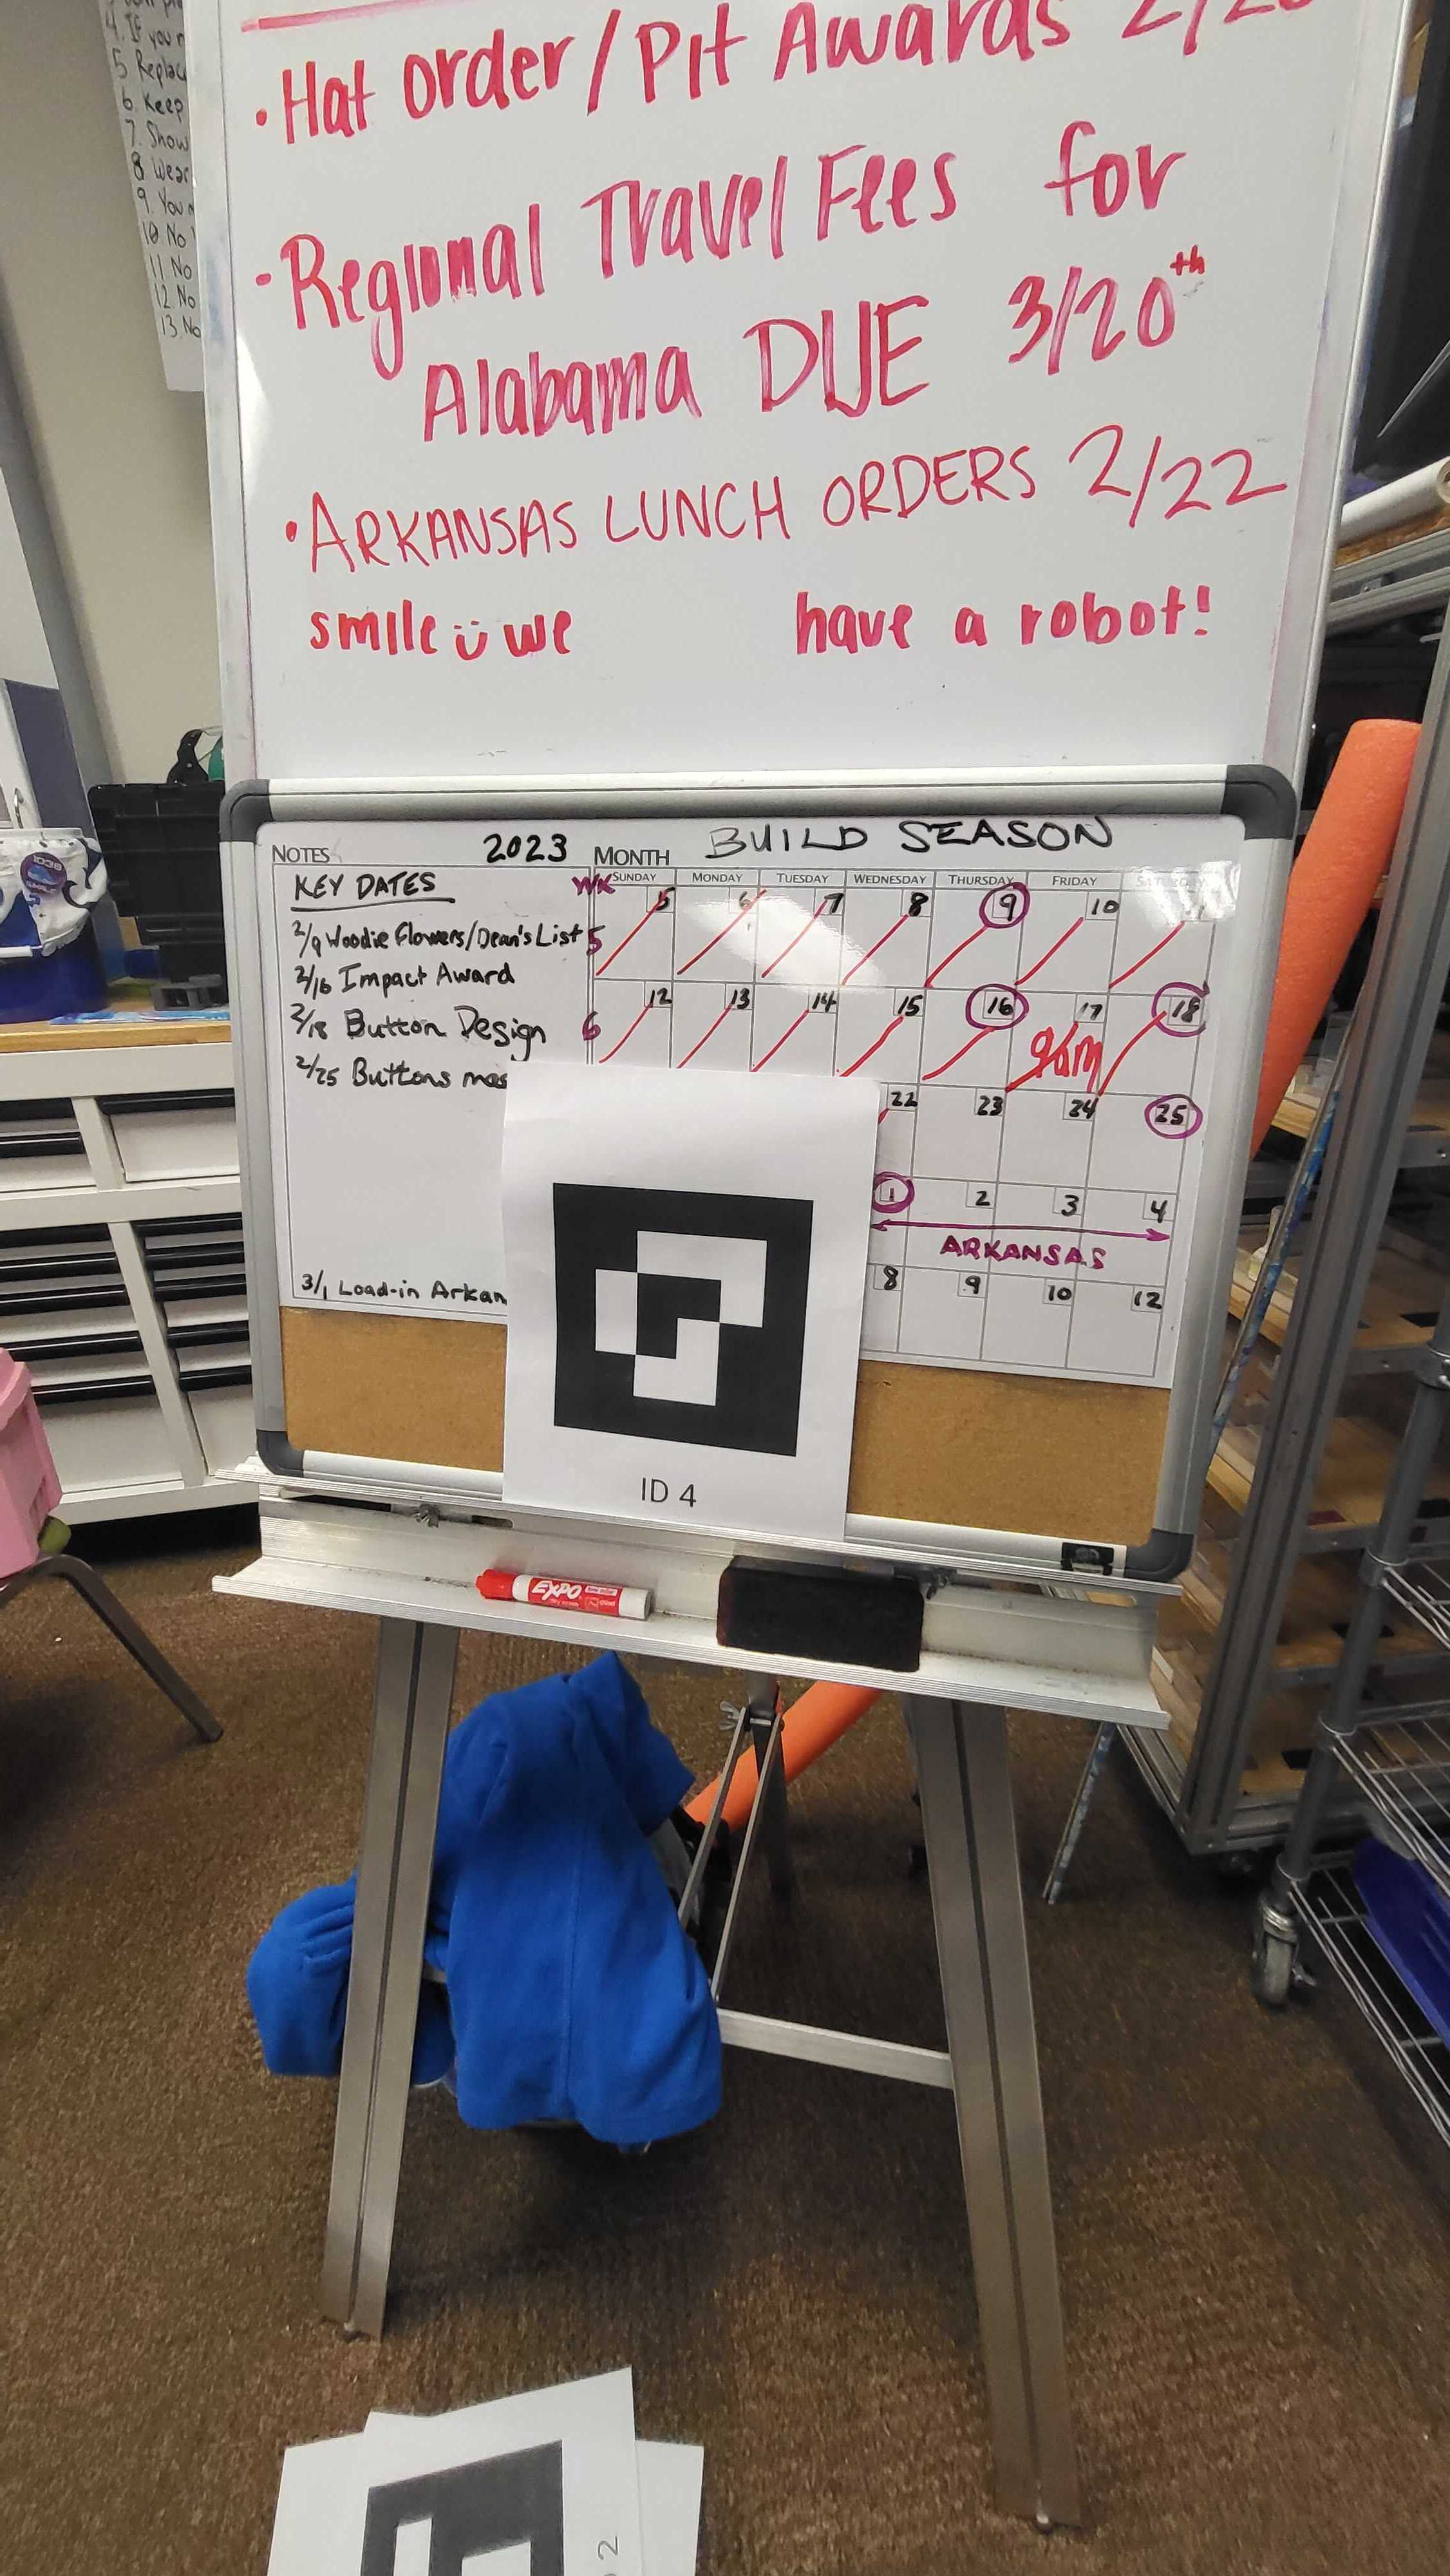 4. If you
5 Replac
6. Keep
7. Show
8 Wear
9. You
10. No
11. No
12. No
13. No
• Hat order/Pit Awards
- Regional Travel Fees for
Alabama DUE 3/20th
• ARKANSAS LUNCH ORDERS 2/22
smile ü we have a robot!
NOTES 2023 MONTH BUILD SEASON
KEY DATES
2/9 Woodie Flowers/Dean's List
2/16 Impact Award
2/18 Button Design
2/25 Buttons
3/1 Load-in Arkan
WK SUNDAY MONDAY TUESDAY WEDNESDAY THURSDAY FRIDAY
5 5 6 7 8 9 10
6 12 13 14 15 16 17 18
9am
22 23 24 25
1 2 3 4
ARKANSAS
8 9 10 12
ID 4
EXPO
2